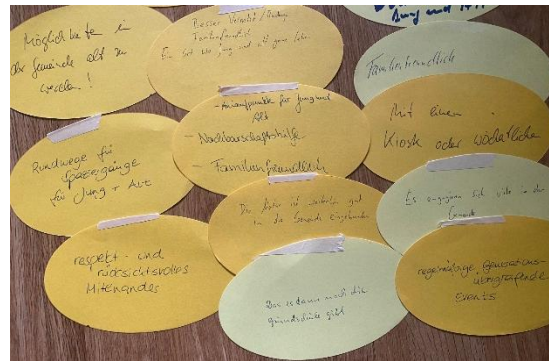 Möglichkeiten in
der Gemeinde alt zu
werden!
Besser
Ein Ort wo jung und alt gerne leben
Jung und Alt
Familienfreundlich
- Anlaufpunkte für Jung und
Alt
- Nachbarschaftshilfe
- Familienfreundlich
Mit einem
Kiosk oder wöchentlichen
Rundwege für
Spaziergänge
für Jung + Alt
Die ist weiterhin gut
in die Gemeinde eingebunden
Es engagieren sich viele in der
Gemeinde
respekt- und
rücksichtsvolles
Miteinander
Das es dann noch die
Grundschule gibt
regelmäßige Generations-
übergreifende
Events